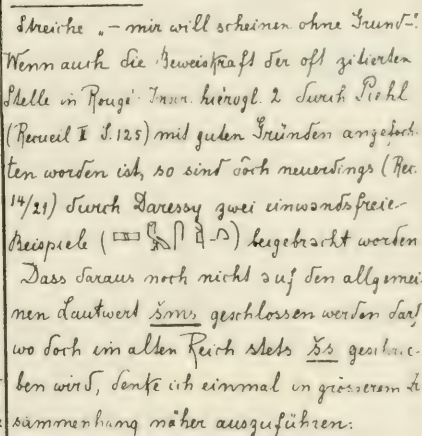 Streiche „– mir will scheinen ohne Grund –“.
Wenn auch die Beweiskraft der oft zitierten
Stelle in Rougé Inscr. hiérogl. 2 durch Piehl
(Recueil II S. 125) mit guten Gründen angefoch-
ten worden ist, so sind doch neuerdings (Rec.
14/21) durch Daressy zwei einwandsfreie
Beispiele ( ) beigebracht worden
Dass daraus noch nicht auf den allgemei-
nen Lautwert šms geschlossen werden darf
wo doch im alten Reich stets šs geschrie-
ben wird, denke ich einmal in grösserem
sammenhang näher auszuführen: